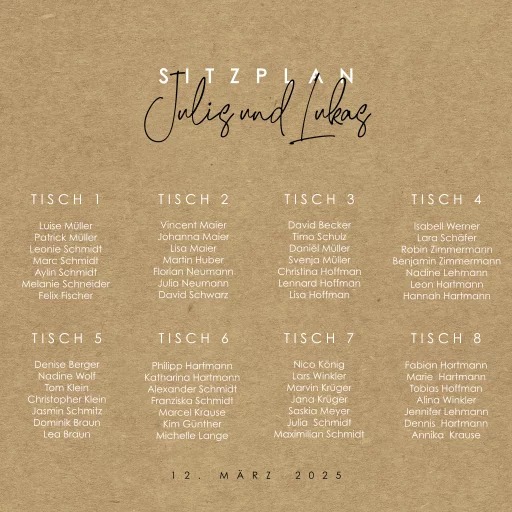 SITZPLAN
Julis und Lukas
TISCH 1
Luise Müller
Patrick Müller
Leonie Schmidt
Marc Schmidt
Aylin Schmidt
Melanie Schneider
Felix Fischer
TISCH 2
Vincent Maier
Johanna Maier
Lisa Maier
Martin Huber
Florian Neumann
Julia Neumann
David Schwarz
TISCH 3
David Becker
Timo Schulz
Daniël Müller
Svenja Müller
Christina Hoffman
Lennard Hoffman
Lisa Hoffman
TISCH 4
Isabell Werner
Lara Schäfer
Robin Zimmermann
Benjamin Zimmermann
Nadine Lehmann
Leon Hartmann
Hannah Hartmann
TISCH 5
Denise Berger
Nadine Wolf
Tom Klein
Christopher Klein
Jasmin Schmitz
Dominik Braun
Lea Braun
TISCH 6
Philipp Hartmann
Katharina Hartmann
Alexander Schmidt
Franziska Schmidt
Marcel Krause
Kim Günther
Michelle Lange
TISCH 7
Nico König
Lars Winkler
Marvin Krüger
Jana Krüger
Saskia Meyer
Julia Schmidt
Maximilian Schmidt
TISCH 8
Fabian Hartmann
Marie Hartmann
Tobias Hoffman
Alina Winkler
Jennifer Lehmann
Dennis Hartmann
Annika Krause
12. MÄRZ 2025